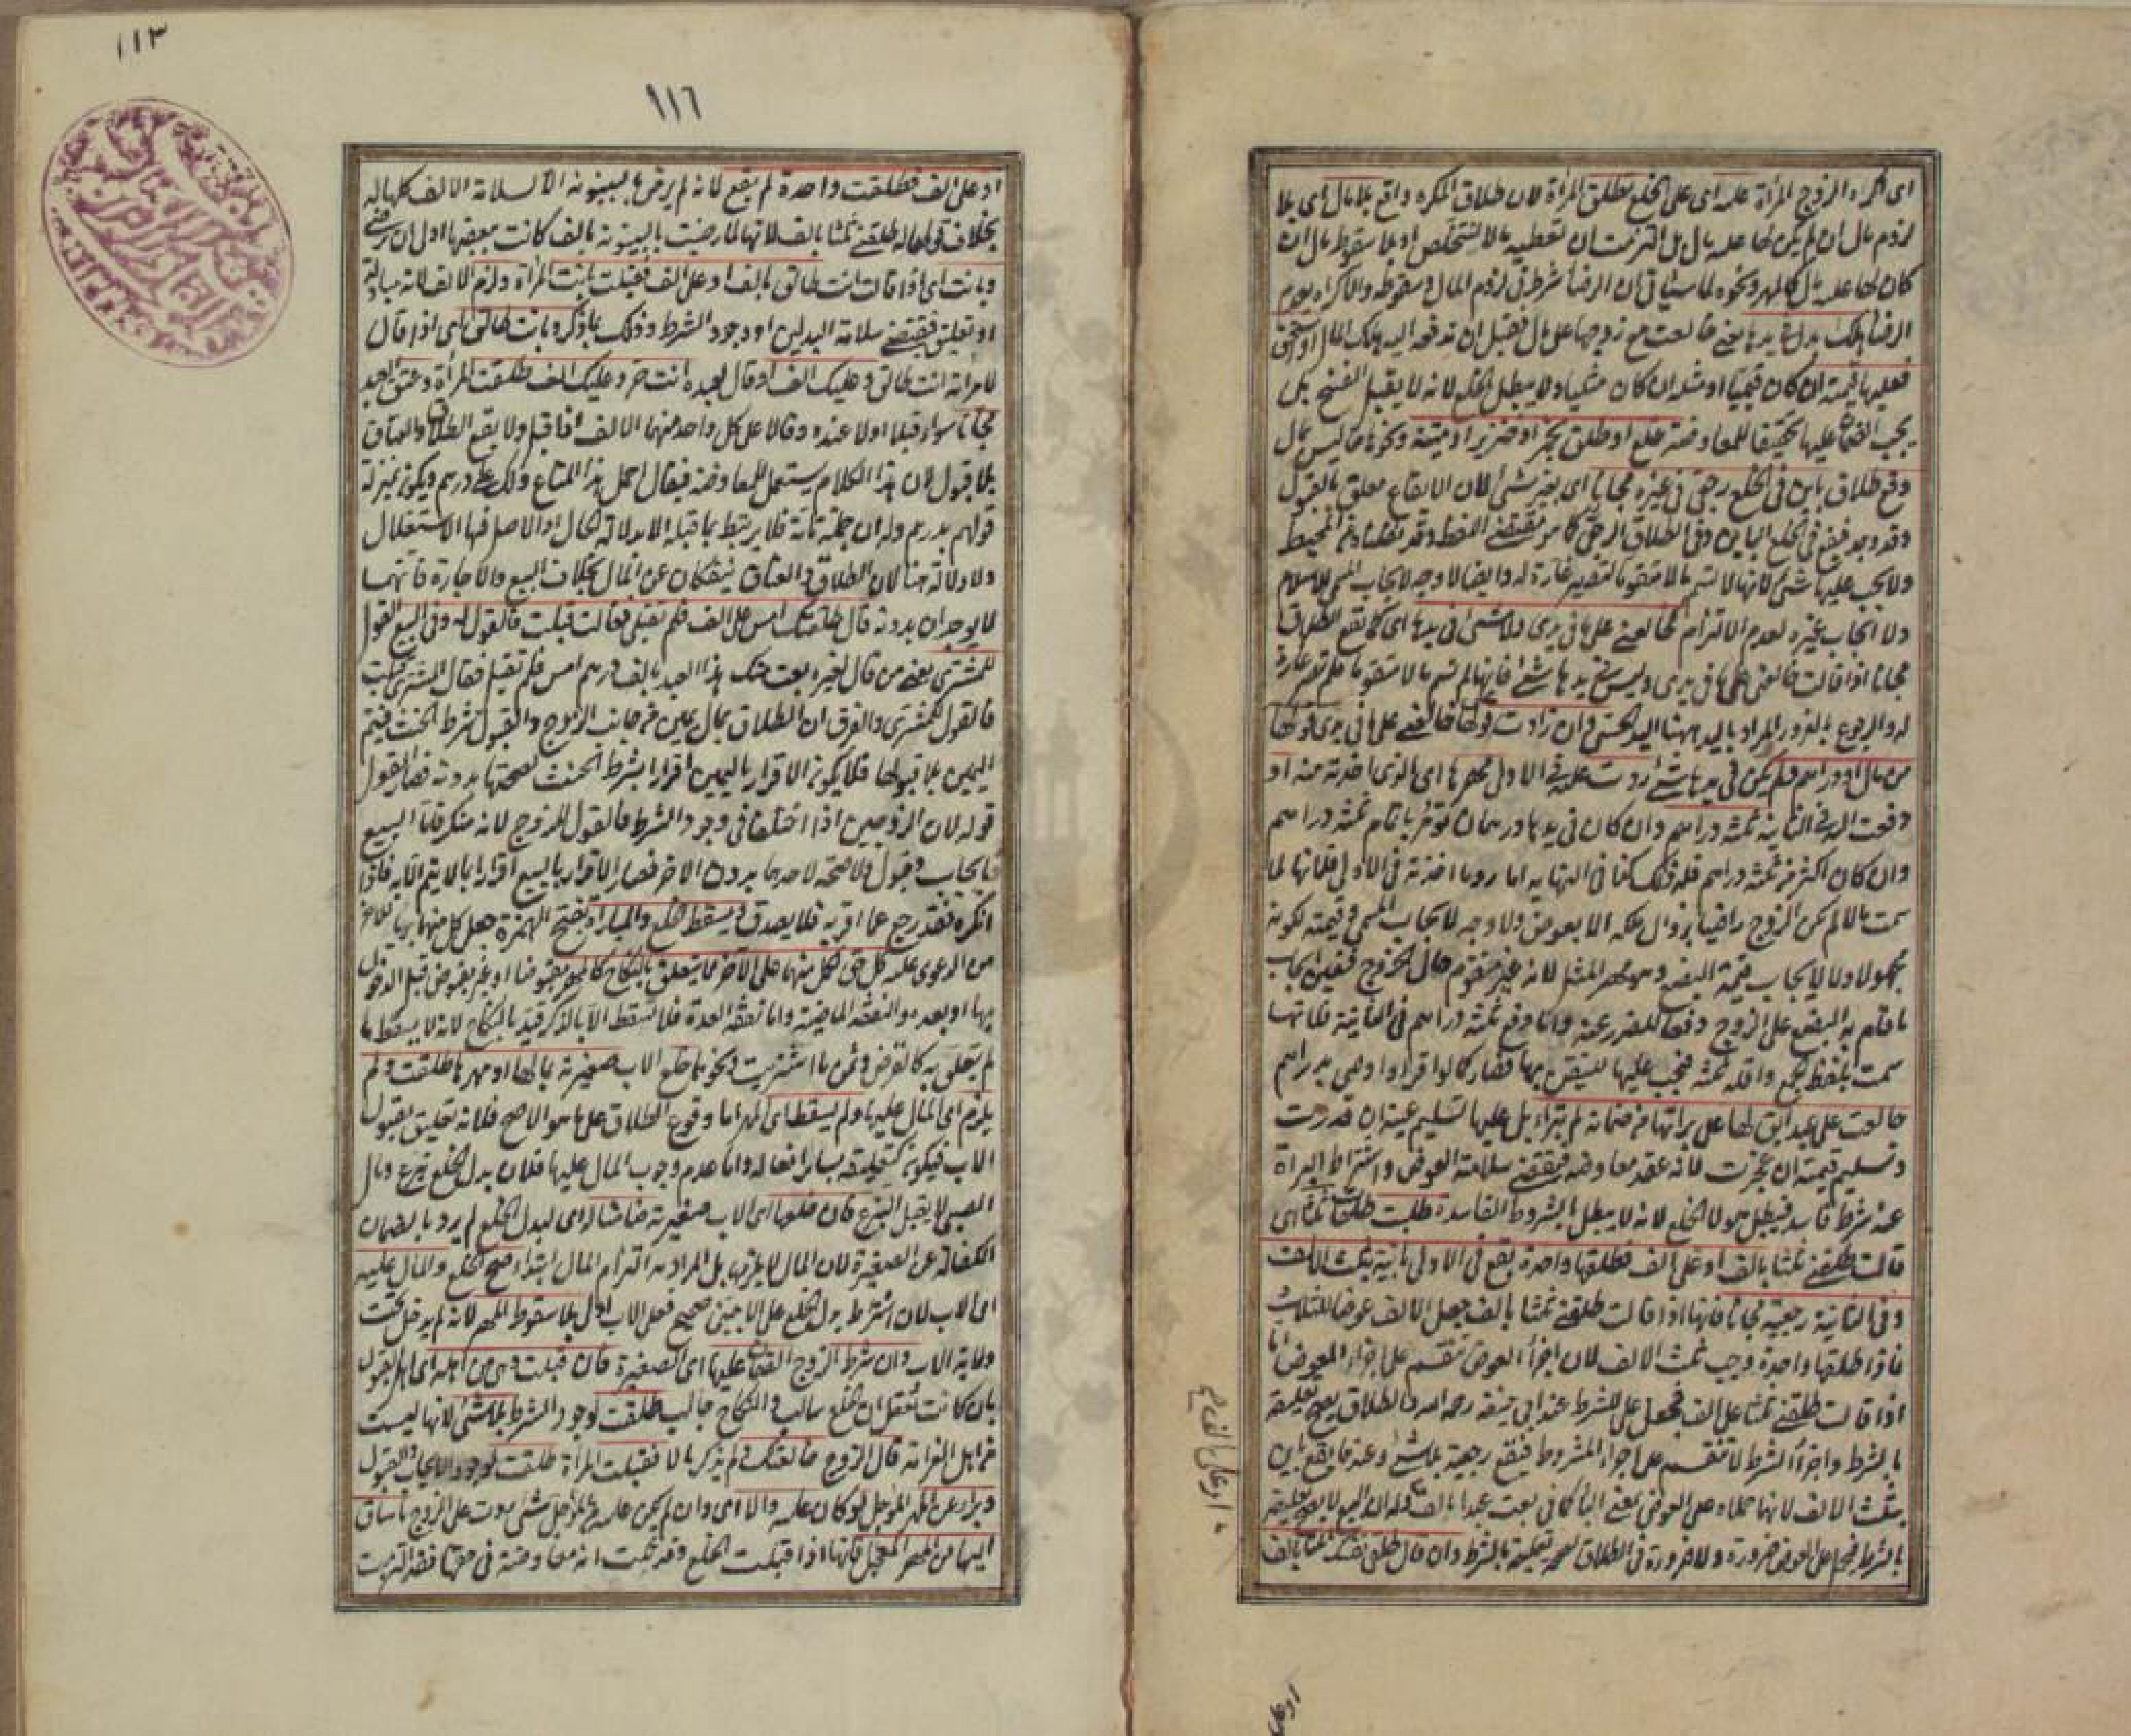 اى اكره الزوج المرأة عليه اى على الخلع تطلق المرأة لان طلاق المكره واقع بلا مال اى بلا
لزوم مال ان لم يكن لها عليه مال بل التزمت ان تعطيه مالا لتتخلص او بلا سقوط مال ان
كان لها عليه مال كالمهر ونحوه لما سيأتى ان الرضا شرط فى لزوم المال وسقوطه والاكراه يعدم
الرضا هلك بدله فى يدها يعنى خالعت مع زوجها على مال فقبل ان تدفعه اليه هلك المال او استحق
فعليها قيمته ان كان قيميا او مثله ان كان مثليا ولا يبطل الخلع لانه لا يقبل الفسخ بل
يجب الضمان عليها تحقيقا للمعاوضة خلع او طلق بخمر او خنزير او ميتة ونحوها مما ليس بمال
وقع طلاق باين فى الخلع رجعى فى غيره مجانا اى بغير شئ لان الايقاع معلق بالقبول
وقد وجد فيقع فى الخلع الباين وفى الطلاق الرجعى كما هو مقتضى اللفظ وقد
ولا يجب عليها شئ لانها لم تسم مالا متقوما لتصير غارة له وايضا لا وجه لايجاب المسمى للاسلام
ولا ايجاب غيره لعدم الالتزام كخالعنى على ما فى يدى ولا شئ فى يدها اى كما تقع الطلاق
مجانا اذا قالت خالعنى على ما فى يدى وليس فى يدها شئ فانها لم تسم مالا متقوما فلم تصر غارة
له والرجوع بالغرور المراد باليد ههنا اليد الحسى وان زادت قولها خالعنى على ما فى يدى قولها
من مال او دراهم فلم يكن فى يدها شئ ردت عليه فى الاولى مهرها اى الذى اخذته منه او
دفعت اليه فى الثانية ثلثة دراهم وان كان فى يدها درهمان تؤمر باتمام ثلثة دراهم
وان كان اكثر من ثلثة دراهم فله ذلك كذا فى النهايه اما رد ما اخذته فى الاولى فلانها لما
سمت مالا لم يكن الزوج راضيا بزوال ملكه الا بعوض ولا وجه لايجاب المسمى وقيمته لكونه
مجهولا ولا لايجاب قيمة البضع وهو مهر المثل لانه غير متقوم حال الخروج فتعين ايجاب
ما قام به البضع على الزوج دفعا للضرر عنه واما دفع ثلثة دراهم فى الثانية فلانها
سمت بلفظ الجمع واقله ثلثة فتجب عليها لتيقن بها فصار كما لو اقر او اوصى بدراهم
خالعت على عبد ابق لها على براتها من ضمانه لم تبرء بل عليها تسليم عينه ان قدرت
وتسليم قيمته ان عجزت لانه عقد معاوضه فيقتضى سلامة العوض واشتراط البراة
عنه شرط فاسد فيبطل هو لا الخلع لانه لا يبطل بالشروط الفاسدة طلبت طلقات ثلثا اى
قالت طلقنى ثلثا بالف او على الف فطلقها واحدة يقع فى الاولى باينة بثلث الالف
وفى الثانية رجعية مجانا فانها اذا قالت طلقنى ثلثا بالف جعل الالف عوضا للثلاث
فاذا طلقها واحدة وجب ثلث الالف لان اجزأ العوض تنقسم على اجزاء المعوض اما
اذا قالت طلقنى ثلثا على الف فجعل على للشرط عند ابى حنيفة رحمه الله فالطلاق يصح تعليقه
بالشرط واجزأ الشرط لا تنقسم على اجزاء المشروط فيقع رجعية بلا شئ وعندهما يقع باين
بثلث الالف لانها حملاه على العوض بمعنى البأ كما فى بعت عبدا بالف وله ان البيع لا يصح تعليقه
بالشرط فيحمل على العوض ضرورة ولا ضرورة فى الطلاق لصحة تعليقه بالشرط وان قال طلقى نفسك ثلثا بالف
او على
١١٣
١١٦
او على الف فطلقت واحدة لم يقع لانه لم يرض بالبينونة الا لسلامة الالف كلها له
بخلاف قولها له طلقنى ثلثا بالف لانها لما رضيت بالبينونة بالف كانت ببعضها اولى ان ترضى
وبانت اى اذا قال انت طالق بالف او على الف فقبلت بانت المرأة ولزم الالف لانه مبادلة
او تعليق فيقتضى سلامة البدلين او وجود الشرط وذلك بما ذكر وبانت طالق اى اذا قال
لامرأته انت طالق وعليك الف او قال لعبده انت حر وعليك الف طلقت المرأة وعتق العبد
مجانا سواء قبلا اولا عنده وقالا على كل واحد منهما الالف اذا قبل ولا يقع الطلاق والعتاق
بلا قبول لان هذا الكلام يستعمل للمعاوضة فيقال احمل هذا المتاع ولك على درهم ويكون بمنزلة
قولهم بدرهم وله ان جملة تامة فلا يرتبط بما قبله الا بدلالة الحال اذ الاصل فيها الاستقلال
ولا دلالة هنا لان الطلاق والعتاق ينفكان عن المال بخلاف البيع والاجارة فانهما
لا يوجدان بدونه قال طلقتك امس على الف فلم تقبلى فقالت قبلت فالقول له وفى البيع القول
للمشترى يعنى من قال لغيره بعت منك هذا العبد بالف درهم امس فلم تقبل فقال المشترى قبلت
فالقول للمشترى والفرق ان الطلاق بمال يمين من جانب الزوج والقبول شرط الحنث فيتم
اليمين بلا قبولها فلا يكون الاقرار باليمين اقرارا بشرط الحنث لصحتها بدونه فصار القول
قوله لان الزوجين اذا اختلفا فى وجود الشرط فالقول للزوج لانه منكر فاما البيع
فايجاب وقبول ولا صحة لاحدهما بدون الاخر فصار الاقرار بالبيع اقرارا بما لا يتم الا به فاذا
انكره فقد رجع عما اقر به فلا يصدق ويسقط الخلع والمباراة بفتح الهمزة جعل كل منهما بريا للاخر
من الدعوى عليه كل حق لكل منهما على الاخر مما يتعلق بالنكاح كالمهر مقبوضا او غير مقبوض قبل الدخول
بها او بعده والنفقة الماضية واما نفقة العدة فلا تسقط الا بالذكر قيد بالنكاح لانه لا يسقط ما
لم يتعلق به كالقرض وثمن ما اشتريت ونحوهما خلع الاب صغيرته بمالها او مهرها طلقت ولم
يلزم اى المال عليها ولم يسقط اى المهر اما وقوع الطلاق على ما هو الاصح فلانه تعليق بقبول
الاب فيكون كتعليقه بسائر افعاله واما عدم وجوب المال عليها فلان بدل الخلع تبرع ومال
الصبى لا يقبل التبرع فان خلعها اى الاب صغيرته ضامنا له اى لبدل الخلع لم يرد بالضمان
الكفالة عن الصغيرة لان المال لا يلزمها بل المراد به التزام المال ابتداء صح الخلع والمال عليه
اى الاب لان اشتراط بدل الخلع على الاجنبى صحيح فعلى الاب اولى بلا سقوط المهر لانه لم يدخل تحت
ولاية الاب وان شرط الزوج الضمان عليها اى الصغيرة فان قبلت وهى من اهله اى اهل القبول
بان كانت تعقل ان الخلع سالب والنكاح جالب طلقت لوجود الشرط بلا شئ لانها ليست
من اهل الغرامة قال الزوج خالعتك ولم يذكر مالا فقبلت المرأة طلقت لوجود الايجاب والقبول
وبرا عن المهر المؤجل لو كان عليه والا اى وان لم يكن عليه من المؤجل شئ ردت على الزوج ما ساق
اليها من المهر المعجل فانها اذا قبلت الخلع وقد عرفت انه معاوضة فى حقها فقد التزمت